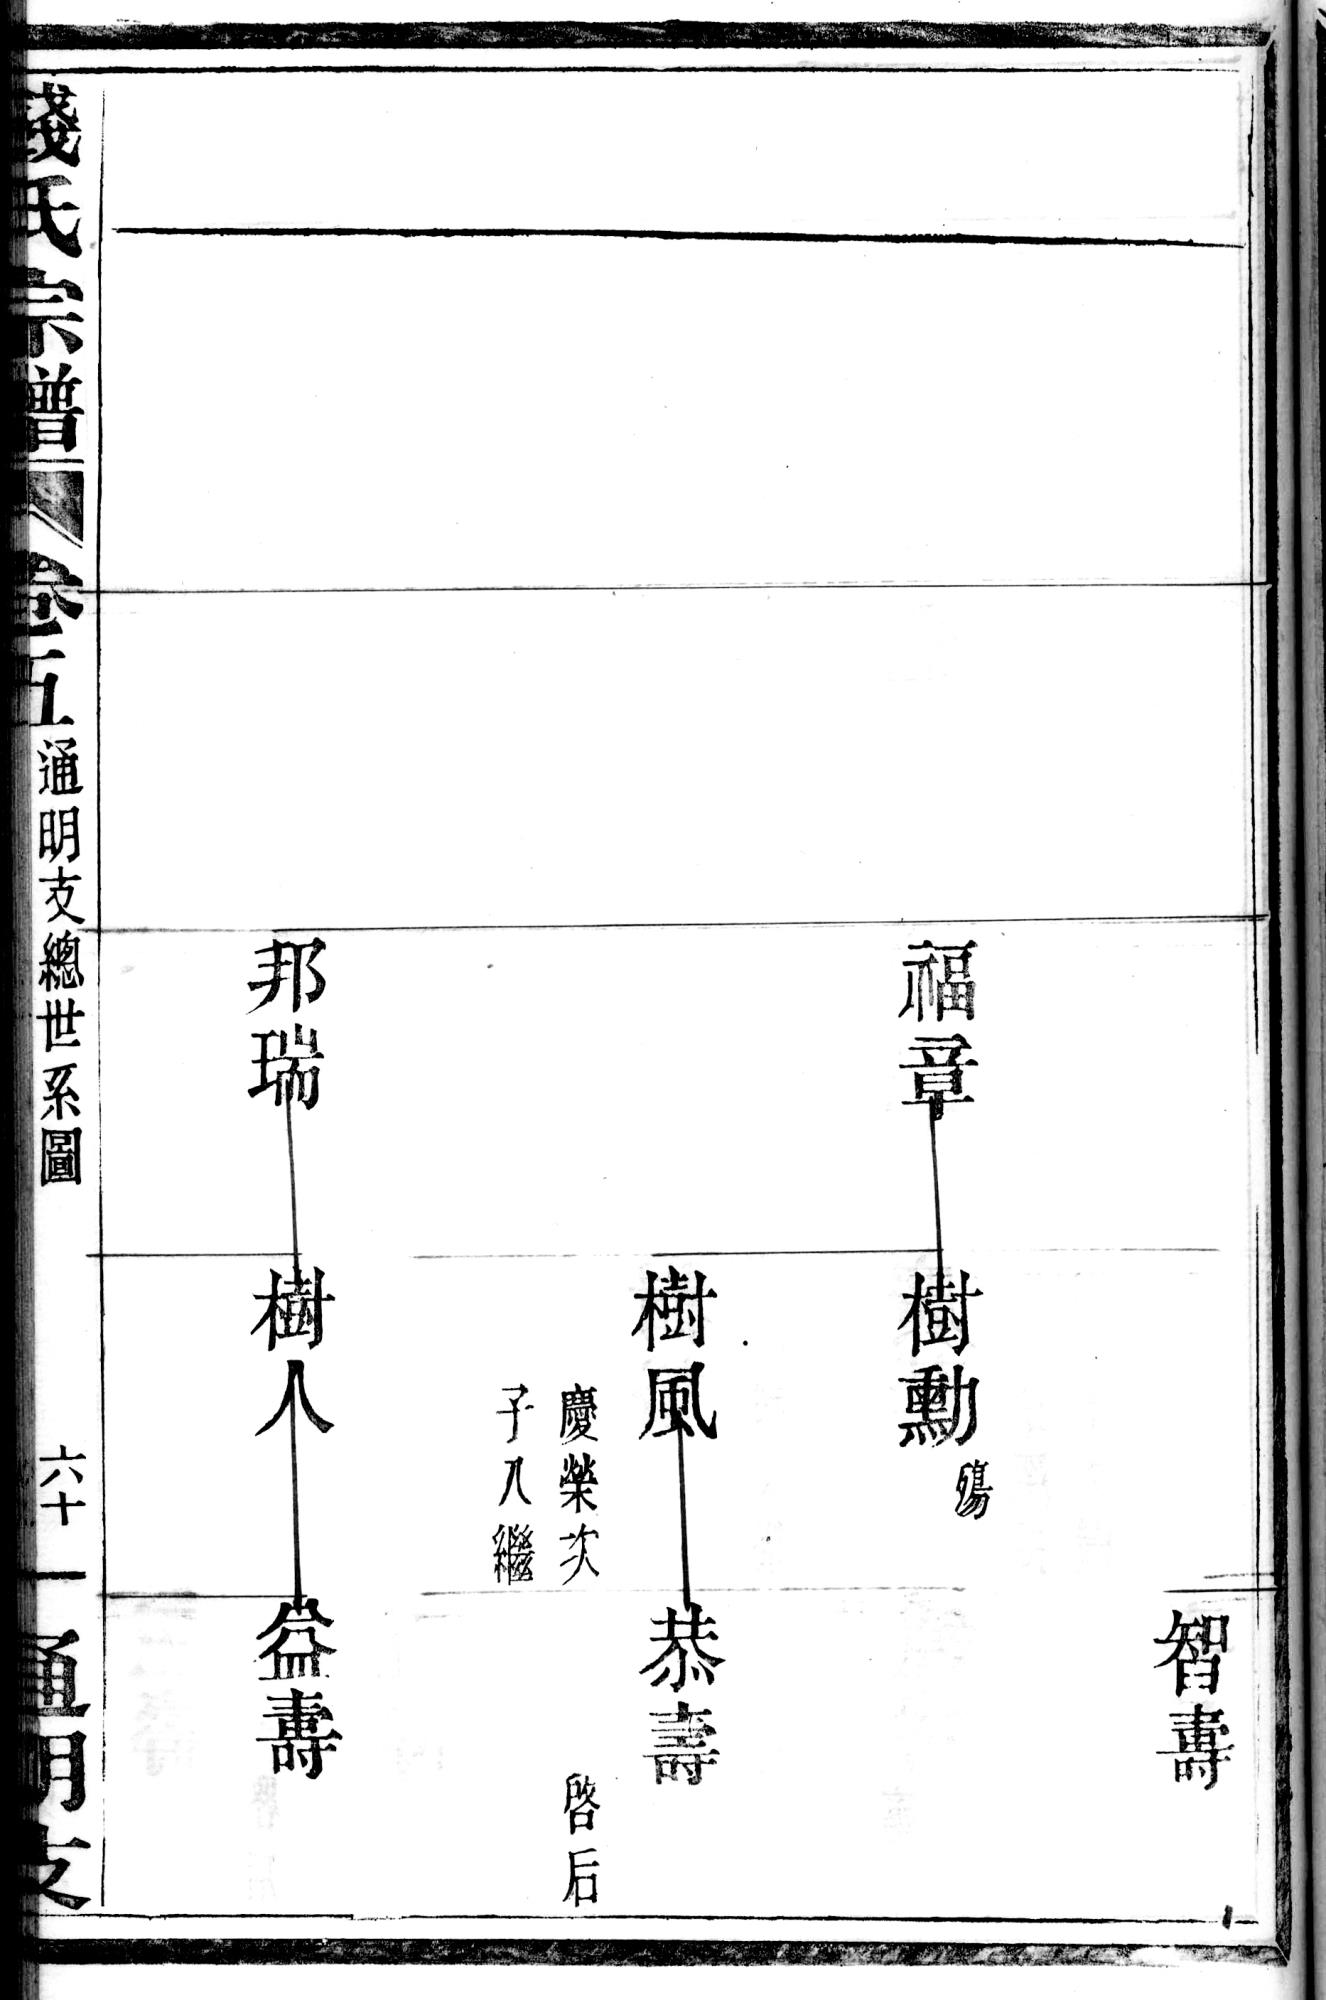 福章
邦瑞
樹勳
殤
樹風
慶榮次
子入繼
樹人
智壽
恭壽
啓后
益壽
錢氏宗譜
卷五
通明支總世系圖
六十一
通明支